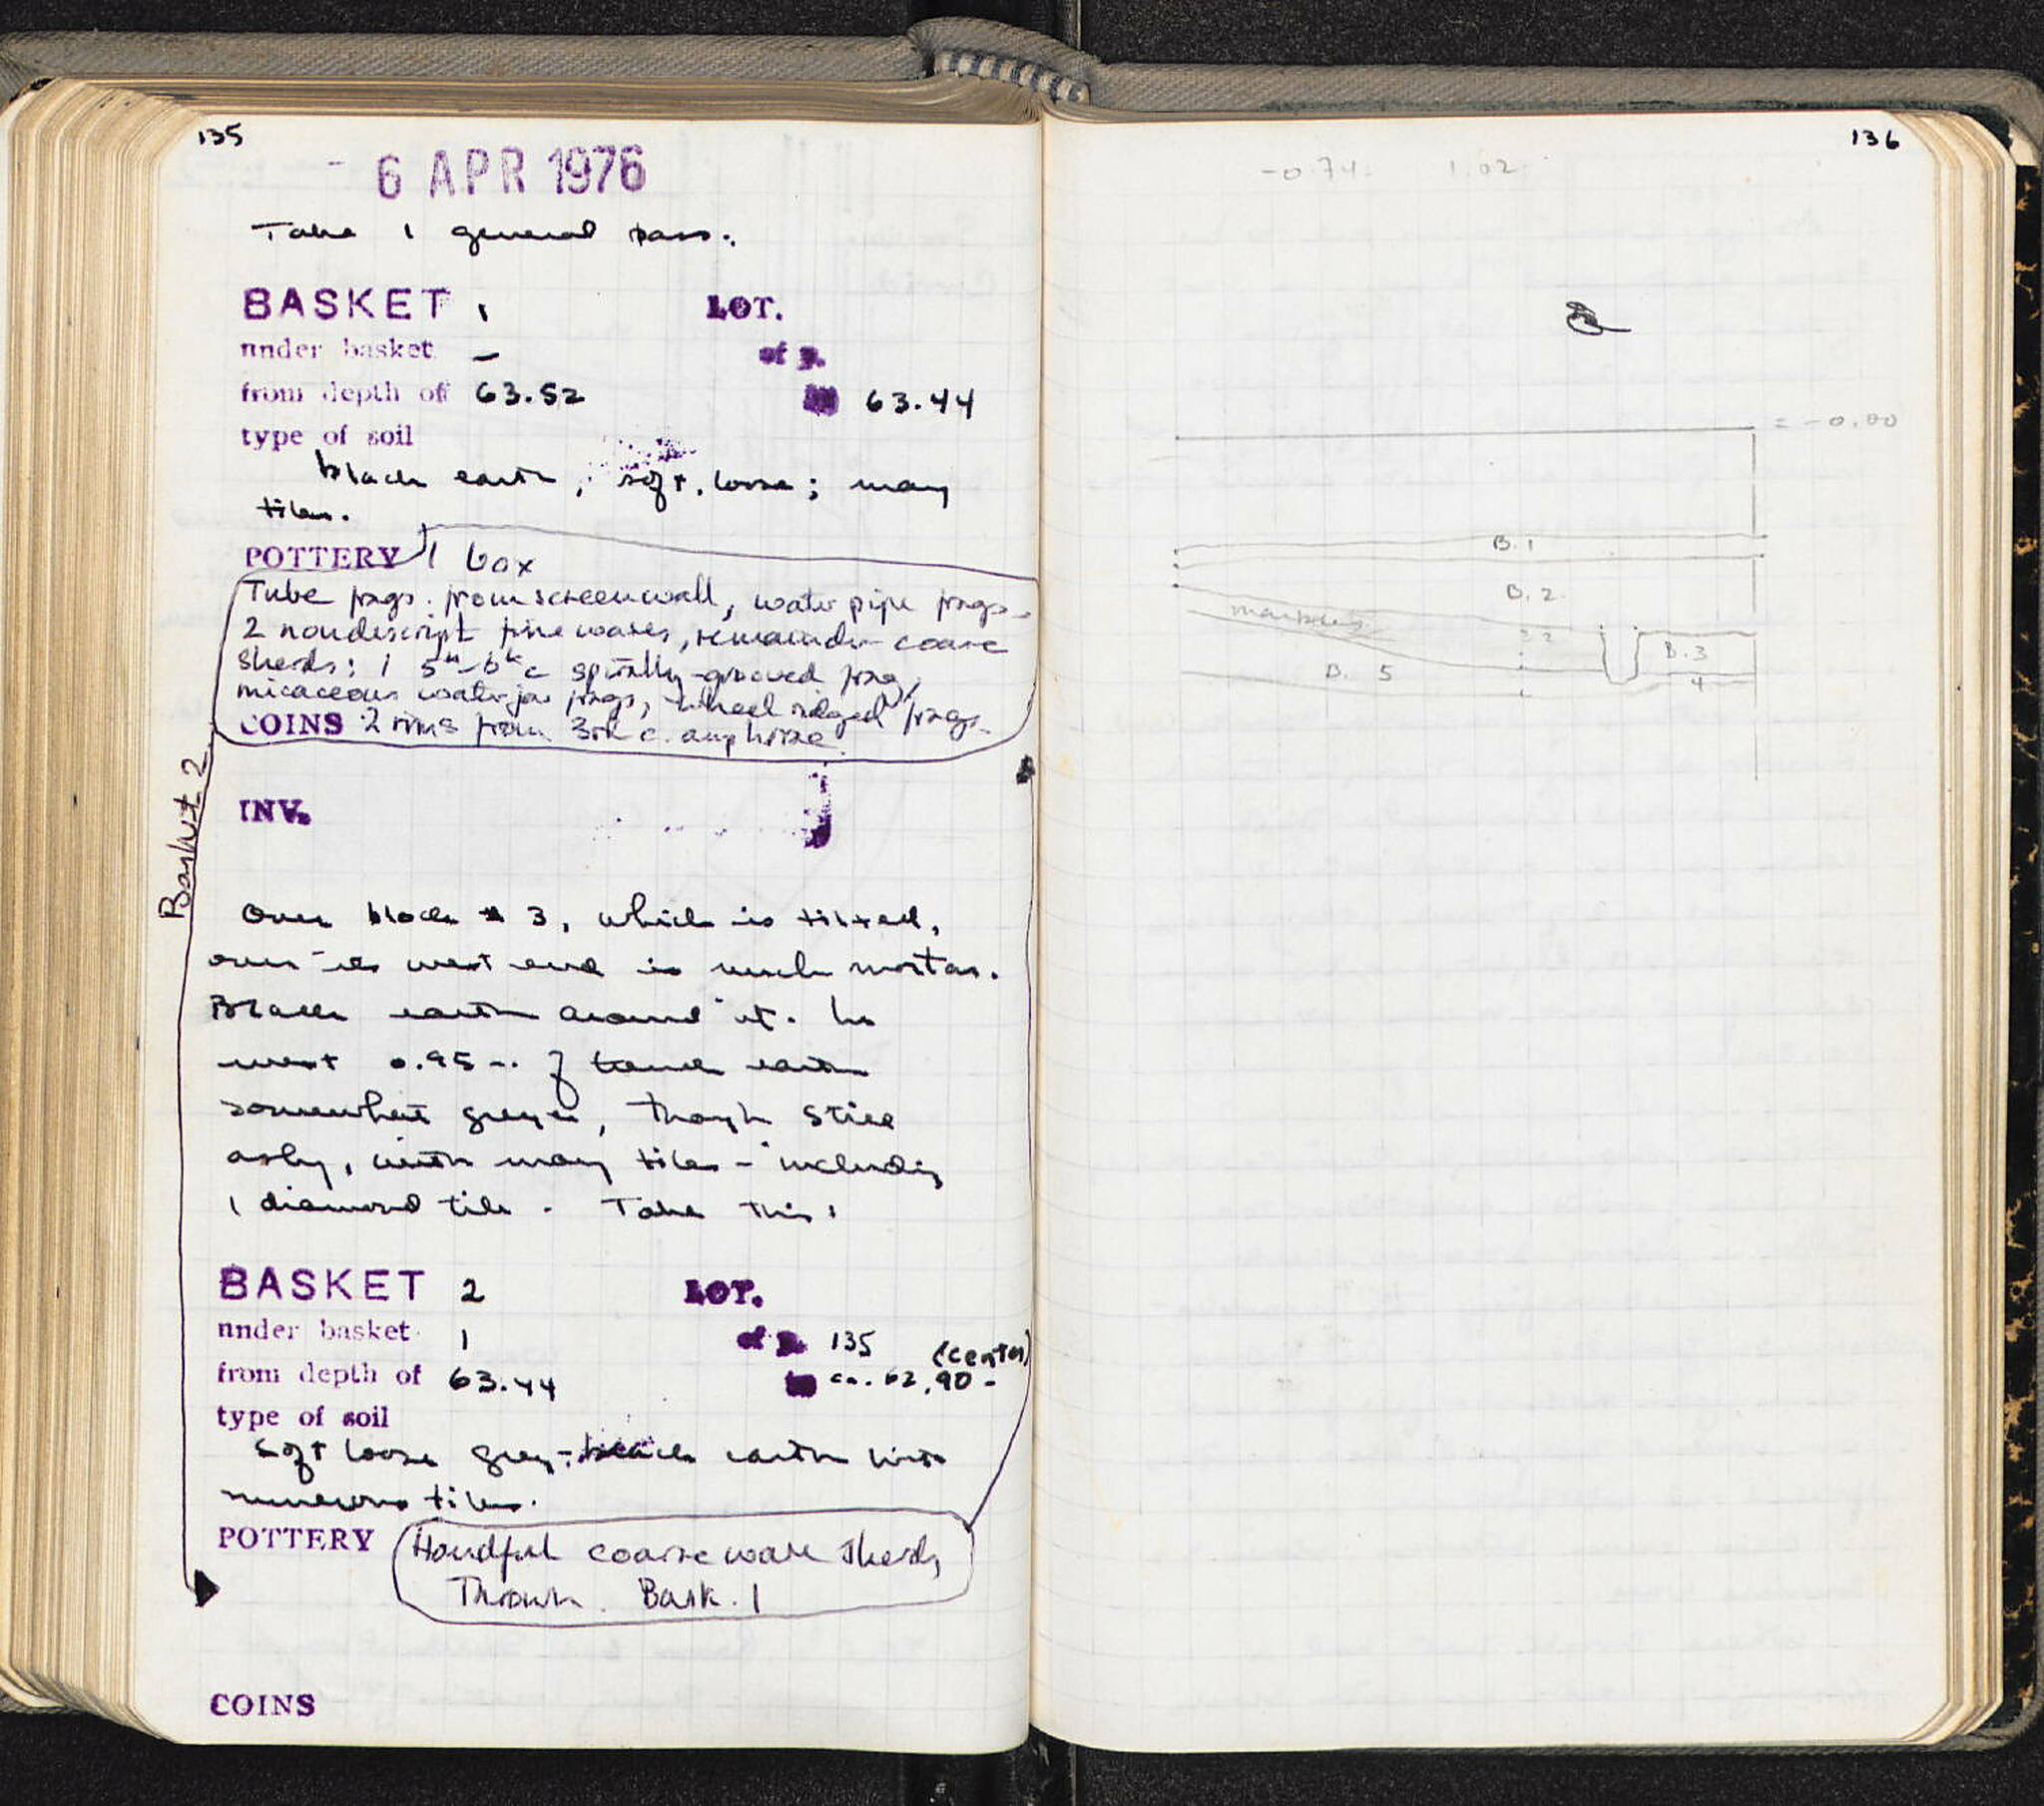 135
- 6 APR 1976
Take 1 general pass.
BASKET 1 LOT.
under basket - of p.
from depth of 63.52 63.44
type of soil
black earth, soft, loose; many
tiles.
POTTERY 1 box
Tube frags. from screenwall, water pipe frags.
2 nondescript fine wares, remainder coarse
sherds: 1 5th-6th c spirally-grooved frag,
micaceous waterjar frags, wheel ridged frags.
COINS 2 rims from 3rd c. amphorae.
Basket 2
INV.
Over block # 3, which is tilted,
over its west end is much mortar.
Black earth around it. In
west 0.95 m. of trench earth
somewhat greyer, though still
ashy, with many tiles - including
1 diamond tile. Take this:
BASKET 2 LOT.
under basket 1 of p. 135
(center)
from depth of 63.44 ca. 62.90 -
type of soil
Soft loose grey-black earth with
numerous tiles.
POTTERY Handful coarse ware sherds
Thrown. Bask. 1
COINS
136
-0.74. 1.02
= -0.00
B.1
B.2
B.3
B. 5
4